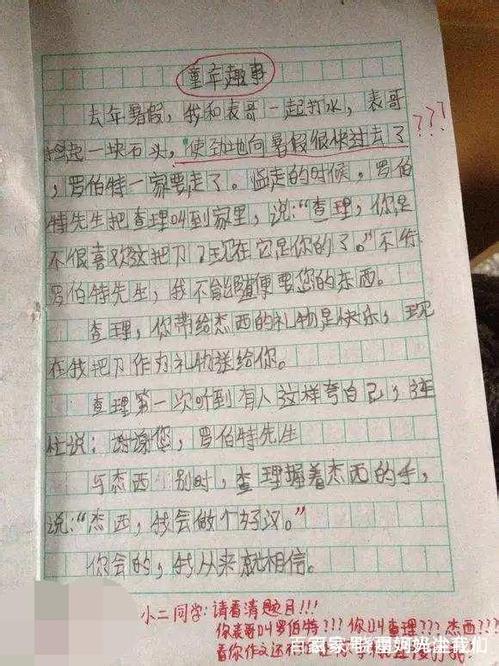 童年趣事
去年暑假，我和表哥一起打水，表哥
捡起一块石头，"使劲地向暑假很快过去了
???
，罗伯特一家要走了。临走的时候，罗伯
特先生把查理叫到家里，说："查理，你是
不很喜欢这把刀？现在它是你的了。"不行
罗伯特先生，我不能随便要您的东西。
查理，你带给杰西的礼物是快乐，现
在我把刀作为礼物送给你。
查理第一次听到有人这样夸自己，连
忙说：谢谢您，罗伯特先生
与杰西 别时，查理握着杰西的手，
说："杰西，我会做个好汉。"
你会的，我从来就相信。
小二同学：请看清题目!!!
你表哥叫罗伯特??? 你叫查理??? 杰西???
看你作文还
百家号/晓茜妈妈